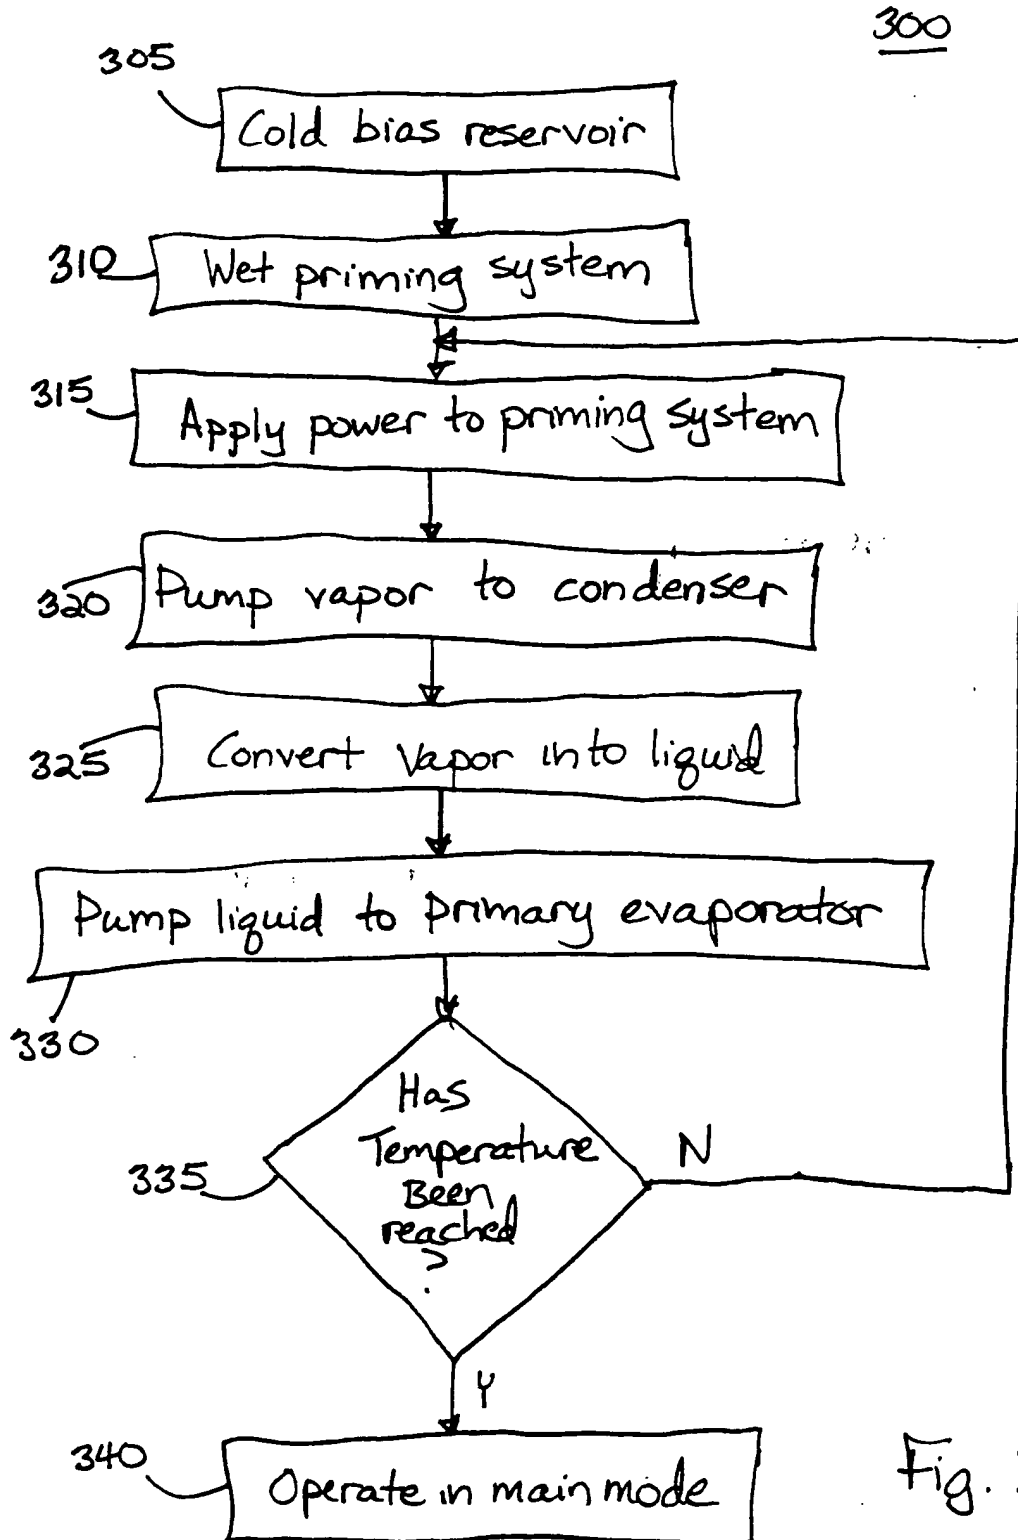 300
305
Cold bias reservoir
310
Wet priming system
315
Apply power to priming system
320
Pump vapor to condenser
325
Convert vapor into liquid
330
Pump liquid to primary evaporator
335
Has
Temperature
Been
reached
?
N
Y
340
Operate in main mode
Fig.